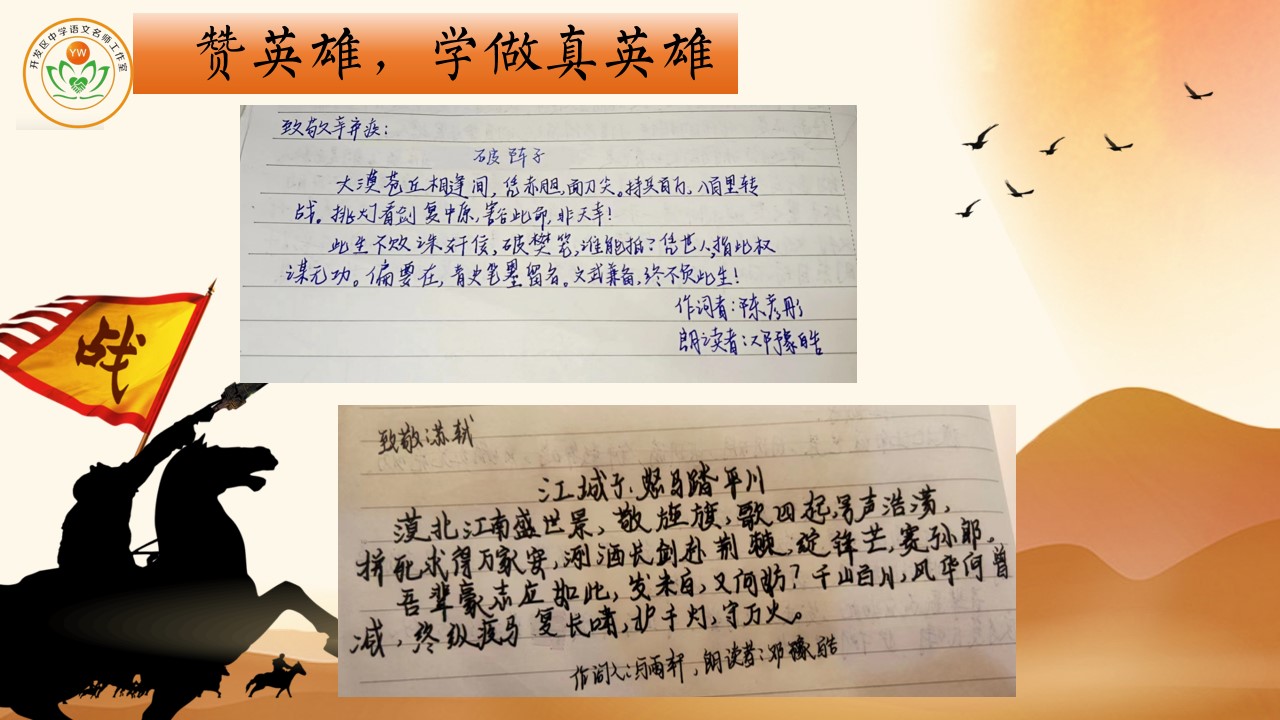 开发区中学语文名师工作室
YW
赞英雄，学做真英雄
致敬辛弃疾：
破阵子
大漠苍丘相逢间，凭赤胆，面刀尖。持兵百万，八百里转
战。挑灯看剑复中原，害合此命，非天幸！
此生不效诛奸佞，破樊笼，谁能拍？凭世人指此权
谋无功。偏要在，青史笔墨留名。文武兼备，终不负此生！
作词者：陈彦彤
朗读者：邓豫皓
战
致敬：苏轼
江城子·怒马踏平川
漠北江南盛世景，敬旌旗，歌四起，号声浩荡，
拼死求得万家安，洌酒长剑赴荆棘，绽锋芒，赛孙郎。
吾辈豪志应如此，发未白，又何妨？千山百川，风华何曾
减，终纵瘦马复长啸，护千灯，守万火。
作词人：雨轩，朗读者：邓豫皓